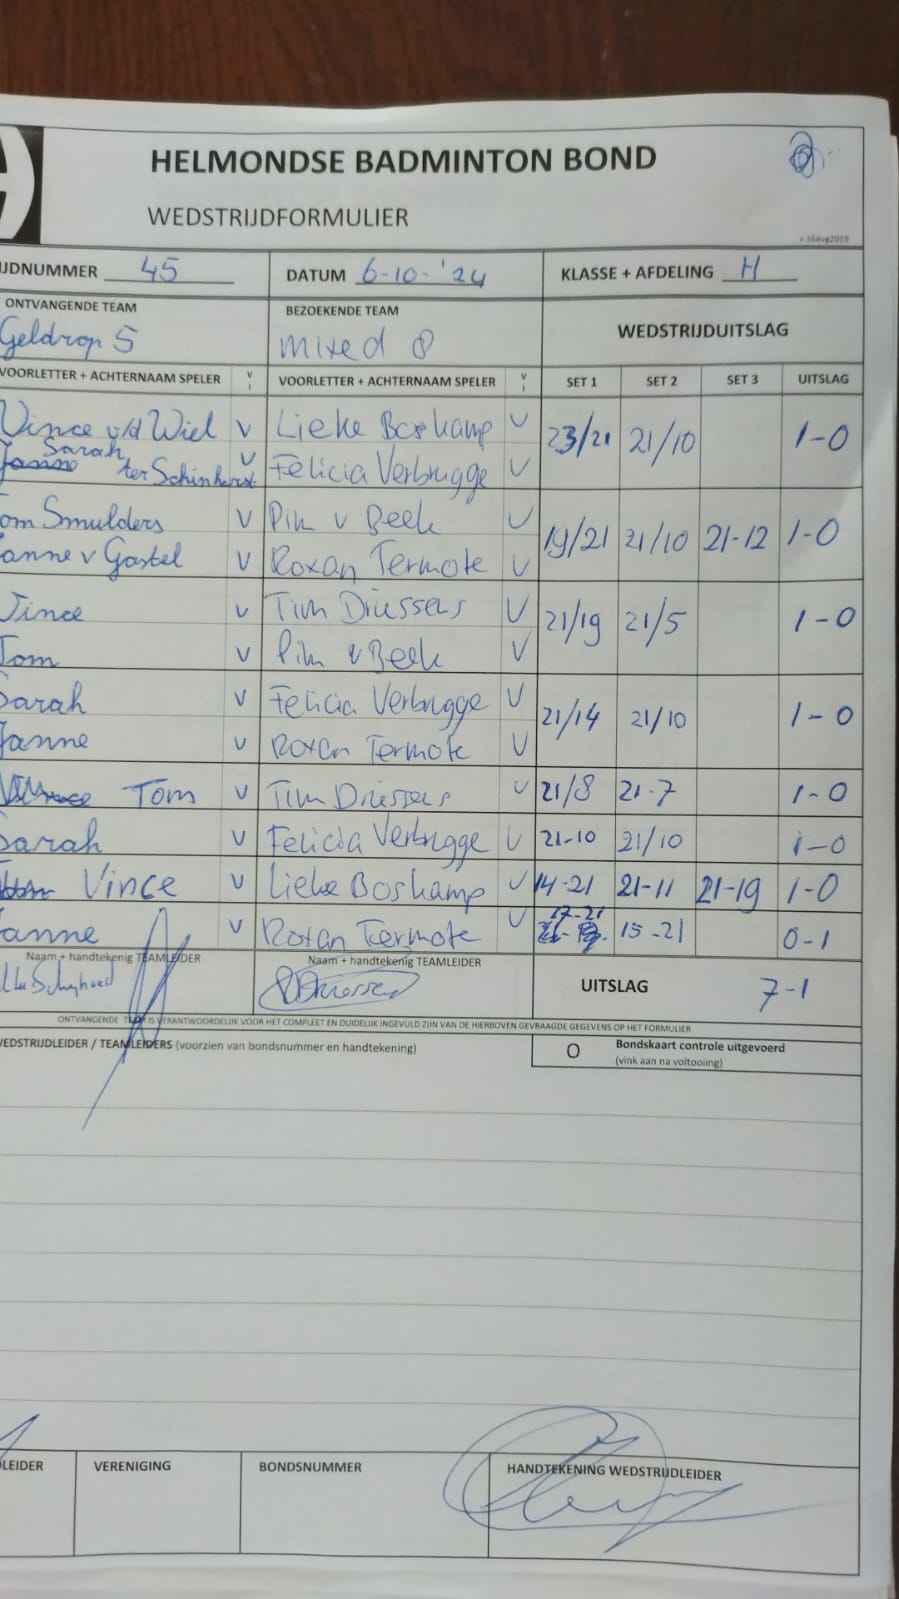 HELMONDSE BADMINTON BOND
WEDSTRIJDFORMULIER
v.16aug2019
IJDNUMMER 45 DATUM 6-10-'24 KLASSE + AFDELING H
ONTVANGENDE TEAM BEZOEKENDE TEAM WEDSTRIJDUITSLAG
Geldrop 5 mixed 8
VOORLETTER + ACHTERNAAM SPELER V I VOORLETTER + ACHTERNAAM SPELER V I SET 1 SET 2 SET 3 UITSLAG
Vince v/d Wiel V Lieke Boskamp V 23/21 21/10 1-0
Sarah ter Schinkerst V Felicia Verbrugge V
Tom Smulders V Pim v Beek V 19/21 21/10 21-12 1-0
Janne v Gastel V Roxan Termote V
Vince V Tim Driessens V 21/19 21/5 1-0
Tom V Pim v Beek V
Sarah V Felicia Verbrugge V 21/14 21/10 1-0
Janne V Roxan Termote V
Tom V Tim Driessens V 21/8 21-7 1-0
Sarah V Felicia Verbrugge V 21-10 21/10 1-0
Vince V Lieke Boskamp V 14-21 21-11 21-19 1-0
Janne V Roxan Termote V 17-21 15-21 0-1
Naam + handtekenig TEAMLEIDER Naam + handtekenig TEAMLEIDER
UITSLAG 7-1
ONTVANGENDE TEAM IS VERANTWOORDELIJK VOOR HET COMPLEET EN DUIDELIJK INGEVULD ZIJN VAN DE HIERBOVEN GEVRAAGDE GEGEVENS OP HET FORMULIER
WEDSTRIJDLEIDER / TEAMLEIDERS (voorzien van bondsnummer en handtekening) O Bondskaart controle uitgevoerd
(vink aan na voltooiing)
LEIDER VERENIGING BONDSNUMMER HANDTEKENING WEDSTRIJDLEIDER